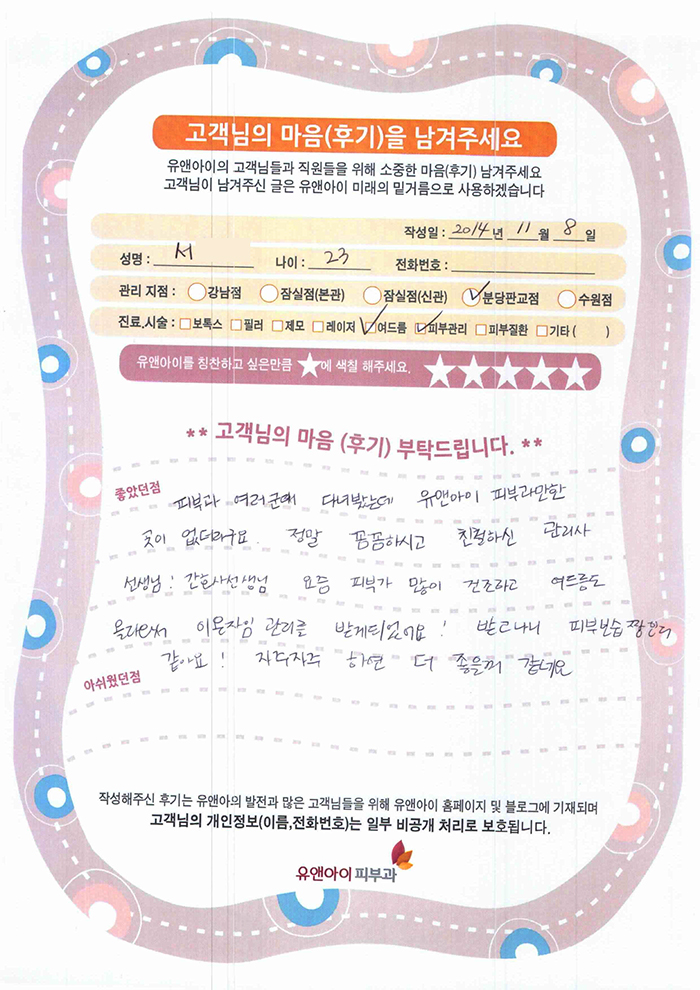 고객님의 마음(후기)을 남겨주세요
유앤아이의 고객님들과 직원들을 위해 소중한 마음(후기) 남겨주세요
고객님이 남겨주신 글은 유앤아이 미래의 밑거름으로 사용하겠습니다
작성일 : 2014 년 11 월 8 일
성명 : 서 나이 : 23 전화번호 :
관리 지점 : 강남점 잠실점(본관) 잠실점(신관) 분당판교점 수원점
진료,시술 : 보톡스 필러 제모 레이저 여드름 피부관리 피부질환 기타 ( )
유앤아이를 칭찬하고 싶은만큼 ★에 색칠 해주세요. ★★★★★
** 고객님의 마음 (후기) 부탁드립니다. **
좋았던점
피부과 여러군데 다녀봤는데 유앤아이 피부과만한
곳이 없더라구요. 정말 꼼꼼하시고 친절하신 관리사
선생님! 간호사선생님 요즘 피부가 많이 건조하고 여드름도
올라와서 이온자임 관리를 받게되었어요! 받고나니 피부보습 짱인거
같아요! 자주자주 하면 더 좋을꺼 같네요
아쉬웠던점
작성해주신 후기는 유앤아의 발전과 많은 고객님들을 위해 유앤아이 홈페이지 및 블로그에 기재되며
고객님의 개인정보(이름,전화번호)는 일부 비공개 처리로 보호됩니다.
유앤아이 피부과